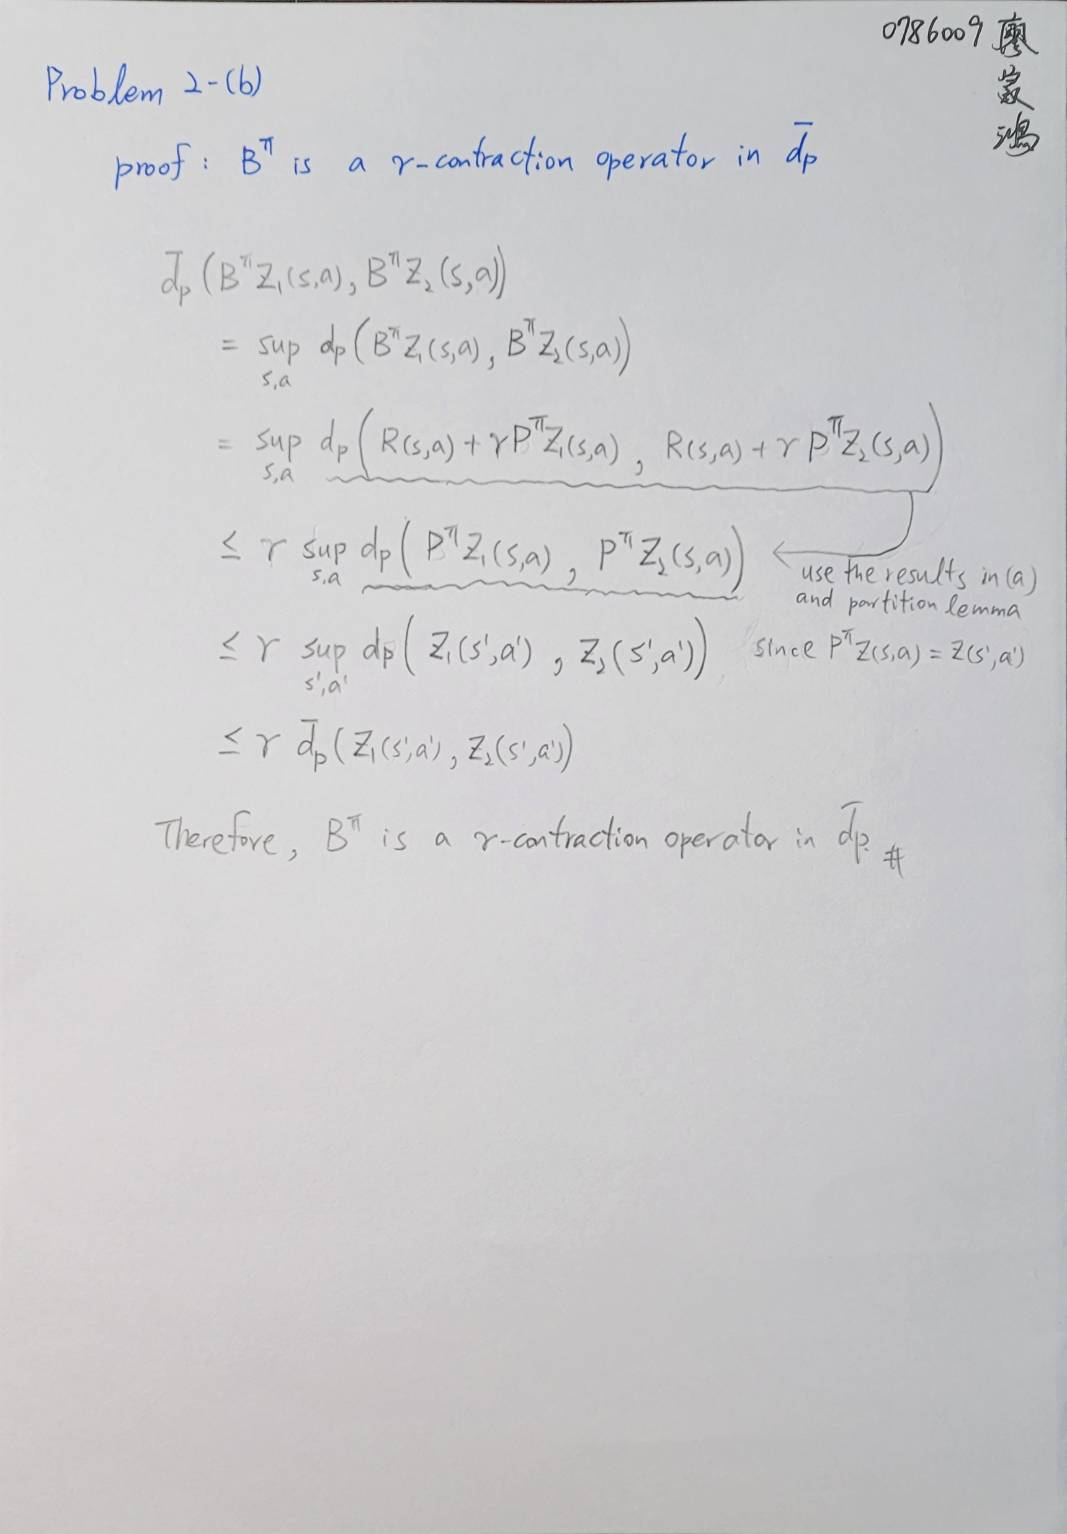 0786009 廖崴鴻
Problem 2-(b)
proof : B^π is a γ-contraction operator in d̄p
d̄p (B^π Z₁(s,a), B^π Z₂(s,a))
= sup_{s,a} dp (B^π Z₁(s,a), B^π Z₂(s,a))
= sup_{s,a} dp (R(s,a) + γP^π Z₁(s,a), R(s,a) + γP^π Z₂(s,a))
≤ γ sup_{s,a} dp (P^π Z₁(s,a), P^π Z₂(s,a)) ← use the results in (a)
and partition lemma
≤ γ sup_{s',a'} dp (Z₁(s',a'), Z₂(s',a')) since P^π Z(s,a) = Z(s',a')
≤ γ d̄p (Z₁(s',a'), Z₂(s',a'))
Therefore, B^π is a γ-contraction operator in d̄p. #